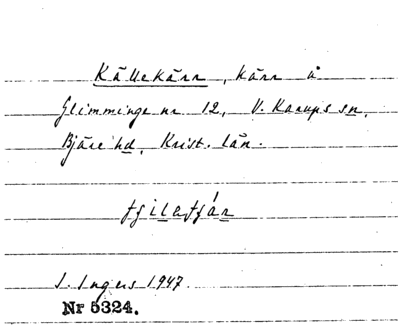 Källekärr, kärr å
Glimminge nr 12, V. Karups sn,
Bjäre hd, Krist. län.
tjilatjár
I. Ingers 1947.
Nr 5324.